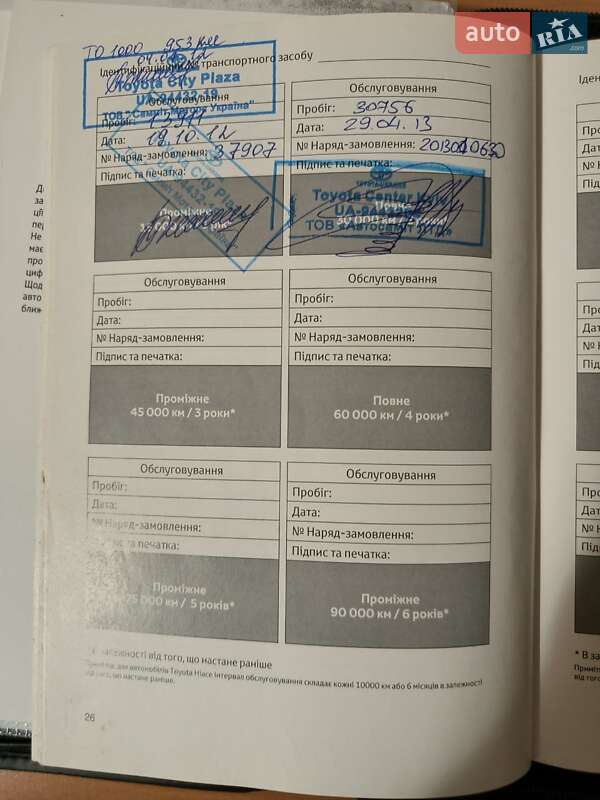 auto RIA.com
ТО 1000 953 км
04.04.12
Ідентифікаційний № транспортного засобу
Toyota City Plaza
UA-94432-19
ТОВ "Самміт Моторз Україна"
Обслуговування
Пробіг: 13971
Дата: 19.10.12
№ Наряд-замовлення: 37907
Підпис та печатка:
Проміжне
Обслуговування
Пробіг: 30756
Дата: 29.04.13
№ Наряд-замовлення:
Підпис та печатка:
Toyota Center Kyiv
ТОВ «Автосаміт ЛТД»
Повне
30 000 км / 2 роки*
Обслуговування
Пробіг:
Дата:
№ Наряд-замовлення:
Підпис та печатка:
Проміжне
45 000 км / 3 роки*
Обслуговування
Пробіг:
Дата:
№ Наряд-замовлення:
Підпис та печатка:
Повне
60 000 км / 4 роки*
Обслуговування
Пробіг:
Дата:
№ Наряд-замовлення:
Підпис та печатка:
Проміжне
75 000 км / 5 років*
Обслуговування
Пробіг:
Дата:
№ Наряд-замовлення:
Підпис та печатка:
Проміжне
90 000 км / 6 років*
залежності від того, що настане раніше
для автомобілів Toyota Hiace інтервал обслуговування складає кожні 10000 км або 6 місяців в залежності
від того, що настане раніше.
26